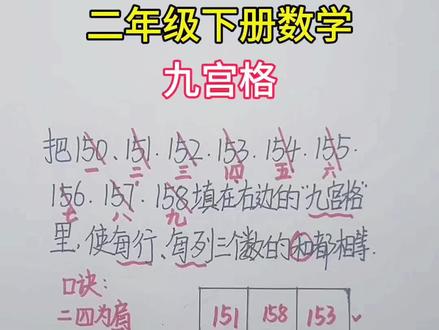 二年级下册数学
九宫格
把150、151.152.153.154.155.
一 二 三 四 五 六
156.157.158填在右边的“九宫格”
七 八 九
里,使每行、每列三个数的和都相等.
口诀:
二四为肩 151 158 153